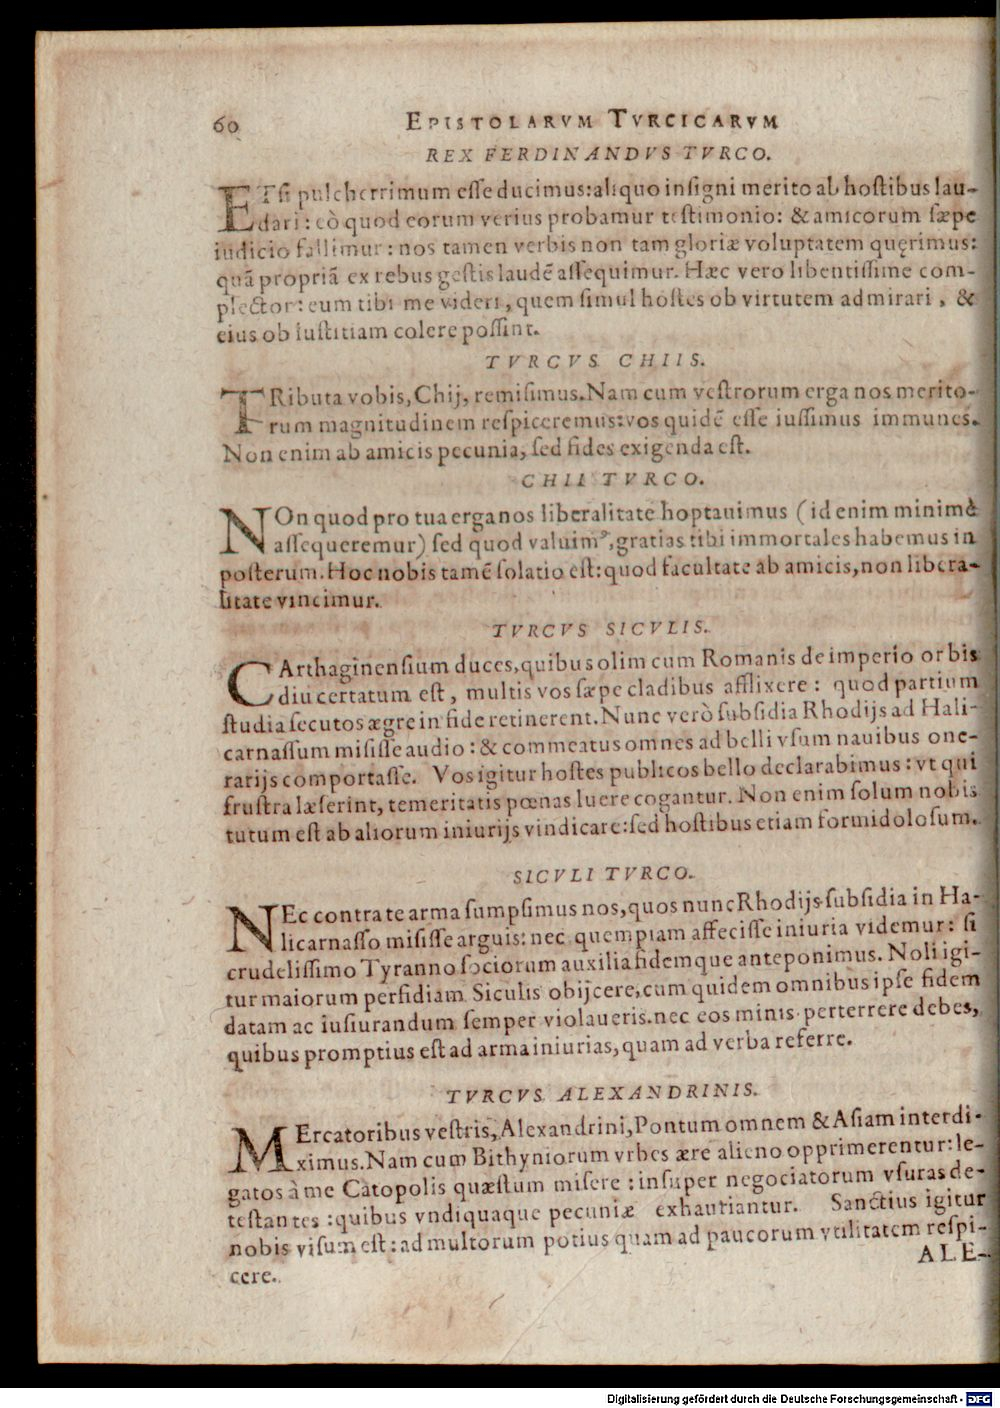 60 EPISTOLARVM TVRCICARVM
REX FERDINANDVS TVRCO.
ETsi pulcherrimum esse ducimus: aliquo insigni merito ab hostibus lau-
dari: eò quod eorum verius probamur testimonio: & amicorum sæpe
iudicio fallimur: nos tamen verbis non tam gloriæ voluptatem quęrimus:
quã propriã ex rebus gestis laudẽ assequimur. Hæc vero libentissime com-
plector: eum tibi me videri, quem simul hostes ob virtutem admirari, &
eius ob iustitiam colere possint.
TVRCVS CHIIS.
TRibuta vobis, Chij, remisimus. Nam cum vestrorum erga nos merito-
rum magnitudinem respiceremus: vos quidẽ esse iussimus immunes.
Non enim ab amicis pecunia, sed fides exigenda est.
CHII TVRCO.
NOn quod pro tua erga nos liberalitate hoptauimus (id enim minimè
assequeremur) sed quod valuimꝰ, gratias tibi immortales habemus in
posterum. Hoc nobis tamẽ solatio est: quod facultate ab amicis, non libera-
litate vincimur.
TVRCVS SICVLIS.
CArthaginensium duces, quibus olim cum Romanis de imperio orbis
diu certatum est, multis vos sæpe cladibus afflixere: quod partium
studia secutos ægre in fide retinerent. Nunc verò subsidia Rhodijs ad Hali-
carnassum misisse audio: & commeatus omnes ad belli vsum nauibus one-
rarijs comportasse. Vos igitur hostes publicos bello declarabimus: vt qui
frustra læserint, temeritatis pœnas luere cogantur. Non enim solum nobis
tutum est ab aliorum iniurijs vindicare: sed hostibus etiam formidolosum.
SICVLI TVRCO.
NEc contra te arma sumpsimus nos, quos nunc Rhodijs subsidia in Ha-
licarnasso misisse arguis: nec quempiam affecisse iniuria videmur: si
crudelissimo Tyranno sociorum auxilia fidemque anteponimus. Noli igi-
tur maiorum perfidiam Siculis obijcere, cum quidem omnibus ipse fidem
datam ac iusiurandum semper violaueris. nec eos minis perterrere debes,
quibus promptius est ad arma iniurias, quam ad verba referre.
TVRCVS ALEXANDRINIS.
MErcatoribus vestris, Alexandrini, Pontum omnem & Asiam interdi-
ximus. Nam cum Bithyniorum vrbes ære alieno opprimerentur: le-
gatos à me Catopolis quæstum misere: insuper negociatorum vsuras de-
testantes: quibus vndiquaque pecuniæ exhauriantur. Sanctius igitur
nobis visum est: ad multorum potius quam ad paucorum vtilitatem respi-
cere.
ALE-
Digitalisierung gefördert durch die Deutsche Forschungsgemeinschaft - DFG